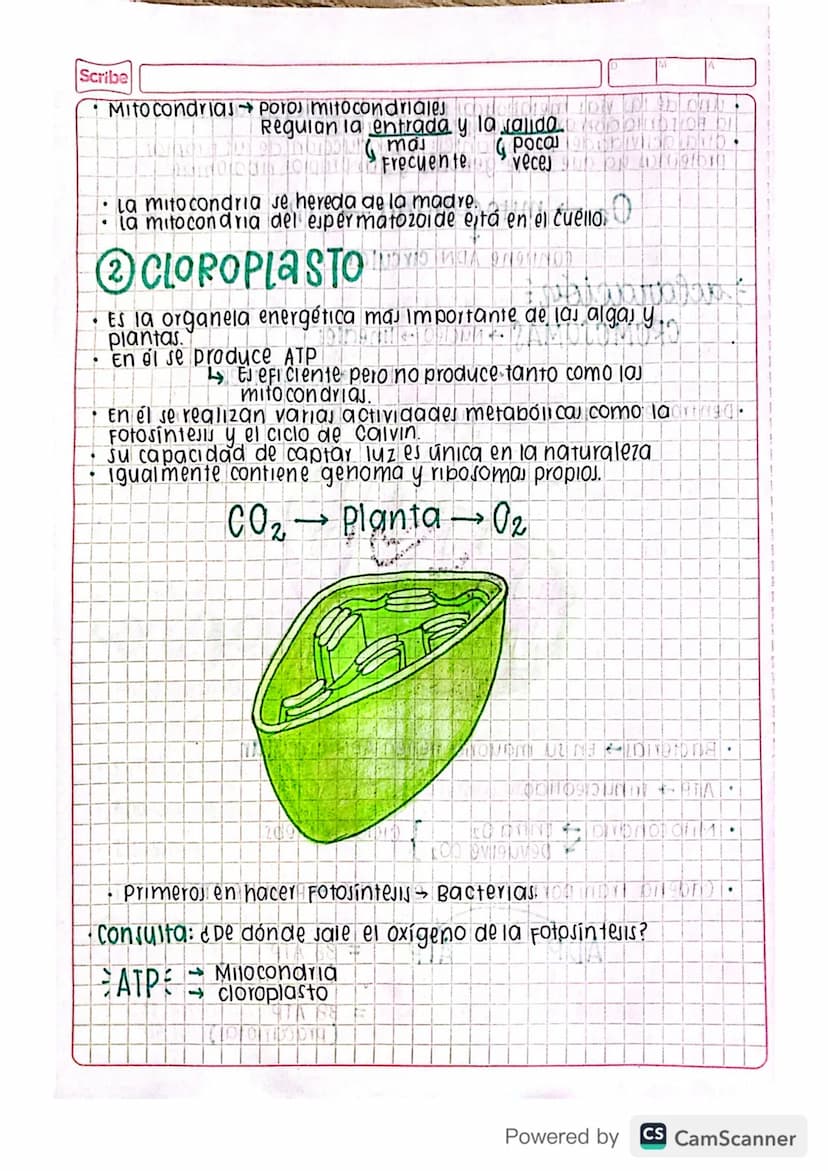 Scribe
D M A
• Mitocondrias → poros mitocondriales
Regulan la entrada y la salida
más pocas
Frecuente veces
• La mitocondria se hereda de la madre.
• La mitocondria del espermatozoide está en el cuello.
② CLOROPLASTO
• Es la organela energética más importante de las algas y
plantas.
• En él se produce ATP
↳ Es eficiente pero no produce tanto como las
mitocondrias.
• En él se realizan varias actividades metabólicas como la
Fotosíntesis y el ciclo de Calvin.
• Su capacidad de captar luz es única en la naturaleza
• Igualmente contiene genoma y ribosomas propios.
CO₂ → Planta → O₂
• Primeros en hacer Fotosíntesis → Bacterias.
• Consulta: ¿De dónde sale el oxígeno de la Fotosíntesis?
ATP → Mitocondria
→ cloroplasto
Powered by CS CamScanner